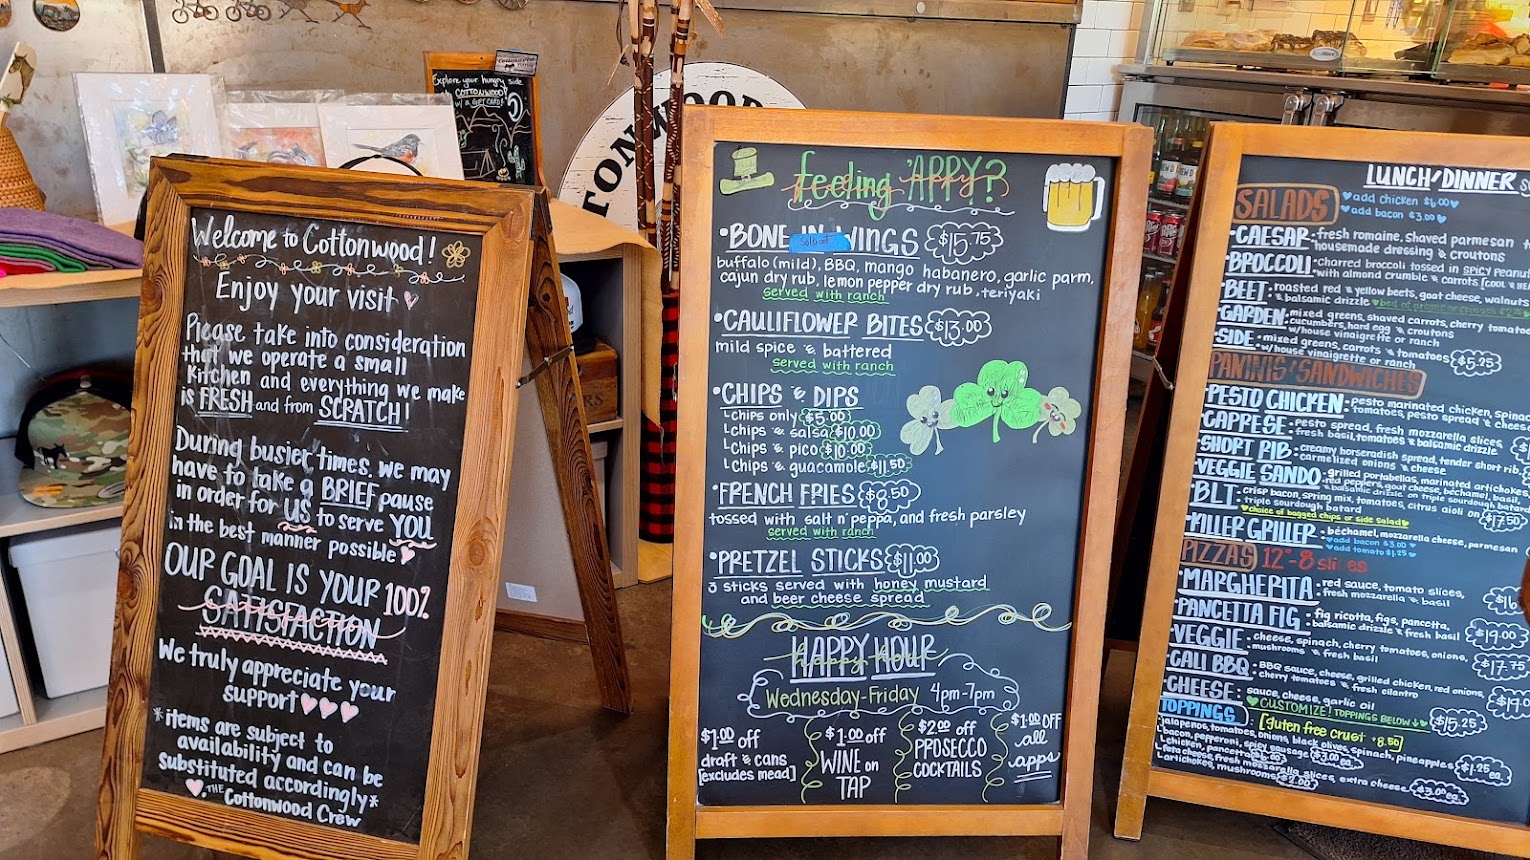 Explore your hungry side
COTTONWOOD
w/ a GIFT CARD!
Welcome to Cottonwood!
Enjoy your visit
Please take into consideration
that we operate a small
kitchen and everything we make
is FRESH and from SCRATCH!
During busier times, we may
have to take a BRIEF pause
in order for US to serve YOU
in the best manner possible
OUR GOAL IS YOUR 100%
SATISFACTION
We truly appreciate your
support
*items are subject to
availability and can be
substituted accordingly*
THE
Cottonwood Crew
TONWOOD
feeling 'APPY?
•BONE IN WINGS $15.75
Sold out
buffalo (mild), BBQ, mango habanero, garlic parm,
cajun dry rub, lemon pepper dry rub, teriyaki
served with ranch
•CAULIFLOWER BITES $13.00
mild spice & battered
served with ranch
•CHIPS & DIPS
chips only $5.00
chips & salsa $10.00
chips & pico $10.00
chips & guacamole $11.50
•FRENCH FRIES $8.50
tossed with salt n' peppa, and fresh parsley
served with ranch
•PRETZEL STICKS $11.00
3 sticks served with honey mustard
and beer cheese spread
HAPPY HOUR
Wednesday-Friday 4pm-7pm
$1.00 off
draft & cans
[excludes mead]
$1.00 off
WINE on
TAP
$2.00 off
PROSECCO
COCKTAILS
$1.00 OFF
all
apps
LUNCH/DINNER
SALADS
add chicken $6.00
add bacon $3.00
•CAESAR: fresh romaine, shaved parmesan
housemade dressing & croutons
•BROCCOLI: charred broccoli tossed in SPICY peanut
with almond crumble & carrots
•BEET: roasted red & yellow beets, goat cheese, walnuts
& balsamic drizzle
•GARDEN: mixed greens, shaved carrots, cherry tomatoes
cucumbers, hard egg & croutons
w/house vinaigrette or ranch
•SIDE: mixed greens, carrots & tomatoes $5.25
w/house vinaigrette or ranch
PANINIS/SANDWICHES
•PESTO CHICKEN: pesto marinated chicken,
tomatoes, pesto spread & cheese
•CAPRESE: pesto spread, fresh mozzarella slices
fresh basil, tomatoes & balsamic drizzle
•SHORT RIB: creamy horseradish spread, tender short rib,
carmelized onions & cheese
•VEGGIE SANDO: grilled portabellas, marinated artichokes,
red peppers, goat cheese, béchamel, basil,
& balsamic drizzle on triple sourdough batard
•BLT: crisp bacon, spring mix, tomatoes, citrus aioli on
triple sourdough batard $17.50
choice of bagged chips or side salad
•KILLER GRILLER: béchamel, mozzarella cheese, parmesan
add bacon $3.00
add tomato $1.25
PIZZAS 12"-8 slices
•MARGHERITA: red sauce, tomato slices,
fresh mozzarella & basil $16
•PANCETTA FIG: fig ricotta, figs, pancetta,
balsamic drizzle & fresh basil $19.00
•VEGGIE: cheese, spinach, cherry tomatoes, onions,
mushrooms & fresh basil $17.75
•CALI BBQ: BBQ sauce, cheese, grilled chicken, red onions,
cherry tomatoes & fresh cilantro $19.0
•CHEESE: sauce, cheese, garlic oil $15.25
CUSTOMIZE! TOPPINGS BELOW
TOPPINGS: [gluten free crust $8.50]
jalapenos, tomatoes, onions, black olives, spinach,
pineapples $1.25 ea.
bacon, pepperoni, spicy sausage $3.00 ea.
chicken, pancetta $6.00
feta cheese, fresh mozzarella slices, extra cheese $3.00 ea
artichokes, mushrooms $2.00